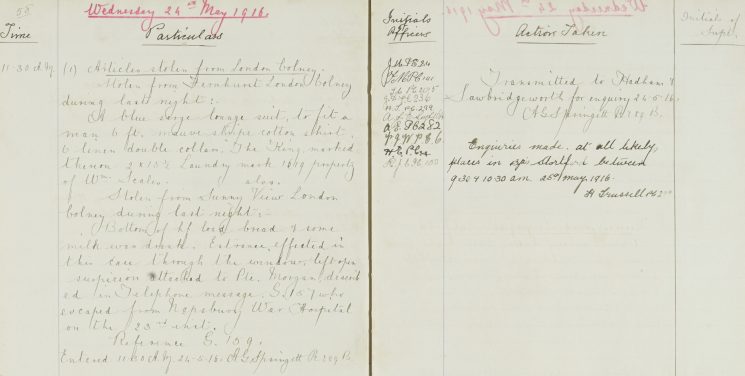 58
Wednesday 24th May 1916.
Time
Particulars
11-30 A.M.
(1) Articles stolen from London Colney.
Stolen from Fernhurst London Colney
during last night:-
A blue serge lounge suit, to fit a
man 6 ft. mauve stripe cotton shirt.
6 linen double collars "The King" marked
thereon 2 x 15½ Laundry mark property
of Wm. Scales. also.
Stolen from Sunny View London
Colney during last night:-
Bottom of hf loaf bread & some
milk was drank. Entrance effected in
this case through the window, left open
suspicion attached to Pte. Morgan, describ
ed in Telephone message. S. 157 who
escaped from Napsbury War Hospital
on the 23rd inst.
Reference S. 159.
Entered 11-40 A.M. 24-5-16. A G Springett
Initials
of Officers
Action Taken
Initials of
Supt.
Transmitted to Hadham &
Sawbridgeworth for enquiry 24-5-16.
A G Springett
Enquiries made at all likely
places in Stortford between
9.30 & 10-30 am. 25th May. 1916.
H Trussell